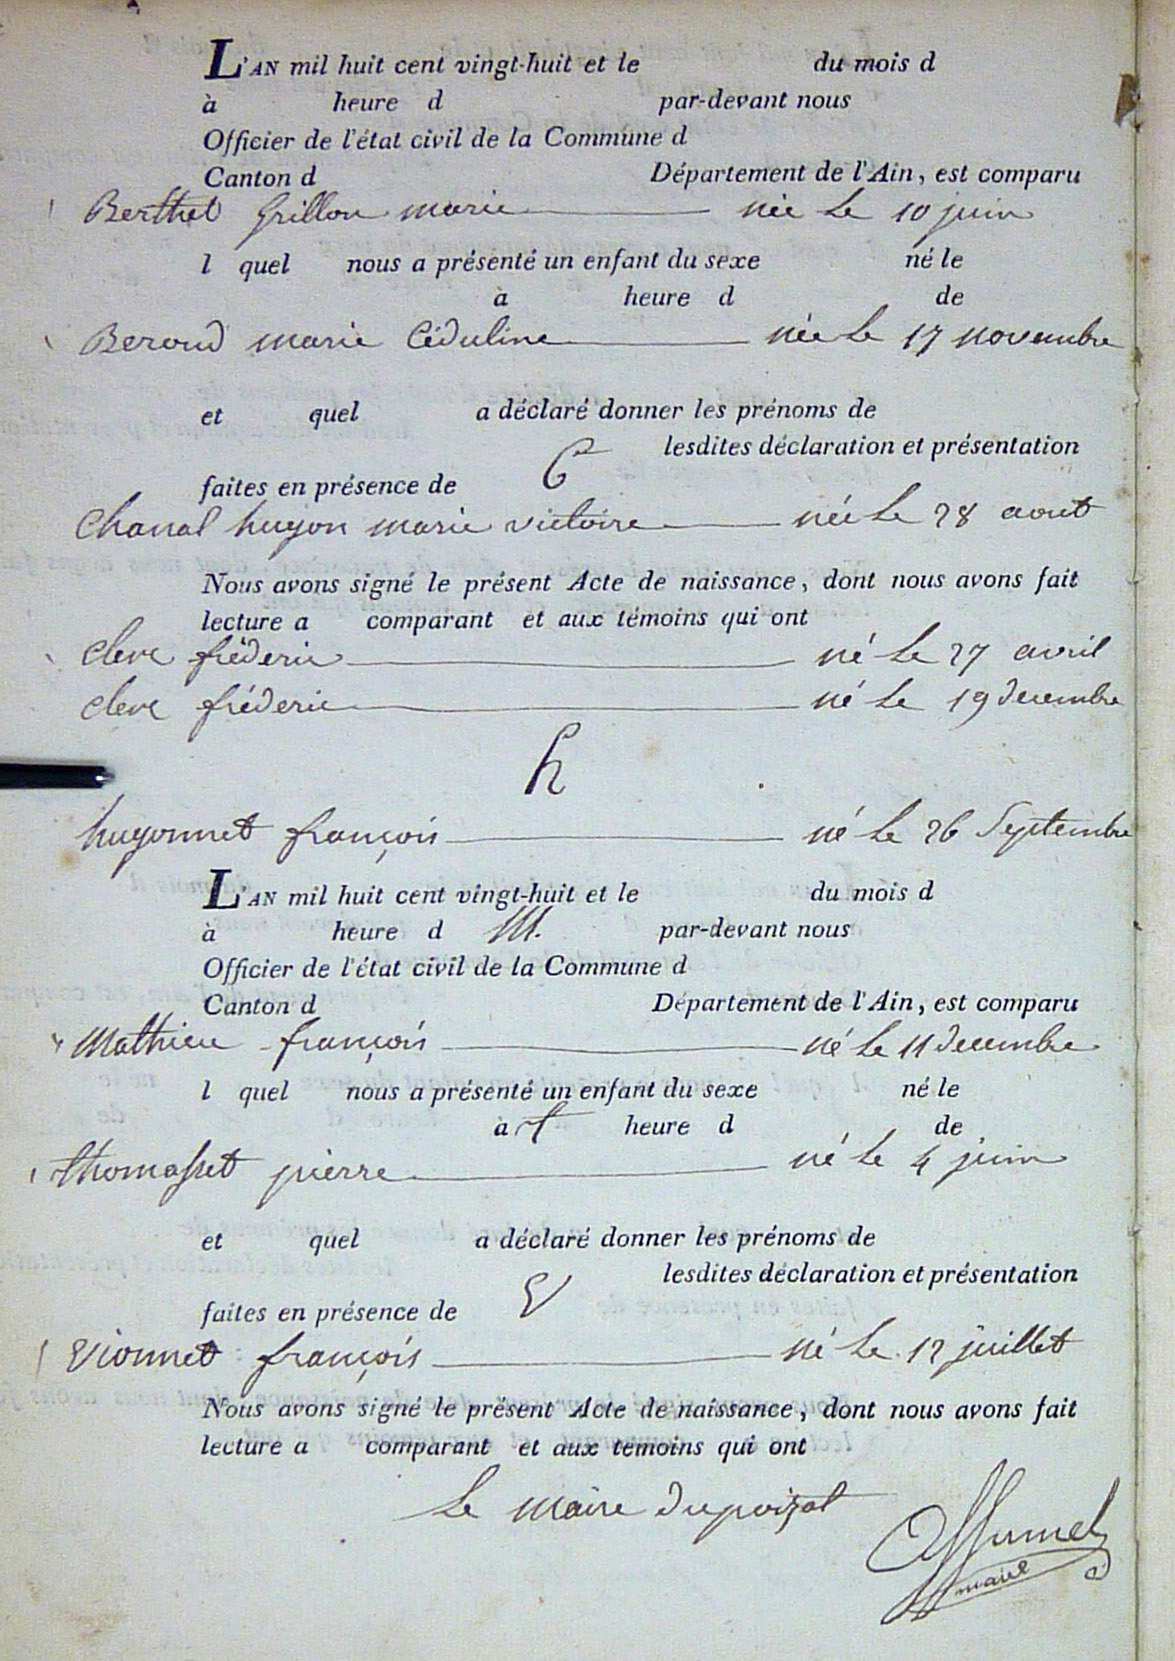 L'AN mil huit cent vingt-huit et le du mois d
à heure d par-devant nous
Officier de l'état civil de la Commune d
Canton d Département de l'Ain, est comparu
Berthet Grillon marie née le 10 juin
l quel nous a présenté un enfant du sexe né le
à heure d de
Beroud marie Céduline née le 17 novembre
et quel a déclaré donner les prénoms de
lesdites déclaration et présentation
C
faites en présence de
Chanal hugon marie victoire née le 28 aout
Nous avons signé le présent Acte de naissance, dont nous avons fait
lecture a comparant et aux témoins qui ont
cleve fréderic né le 27 avril
cleve fréderic né le 19 decembre
h
hugonnet françois né le 26 Septembre
L'AN mil huit cent vingt-huit et le du mois d
à heure d M. par-devant nous
Officier de l'état civil de la Commune d
Canton d Département de l'Ain, est comparu
Mathieu françois né le 11 decembre
l quel nous a présenté un enfant du sexe né le
à t heure d de
thomasset pierre né le 4 juin
et quel a déclaré donner les prénoms de
lesdites déclaration et présentation
V
faites en présence de
Vionnet françois né le 12 juillet
Nous avons signé le présent Acte de naissance, dont nous avons fait
lecture a comparant et aux témoins qui ont
Le maire du poizat
maire